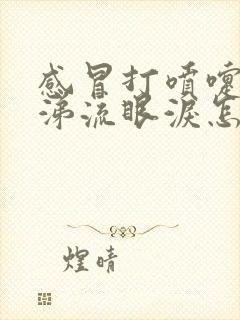 感冒打喷嚏
涕流眼泪怎
煌晴